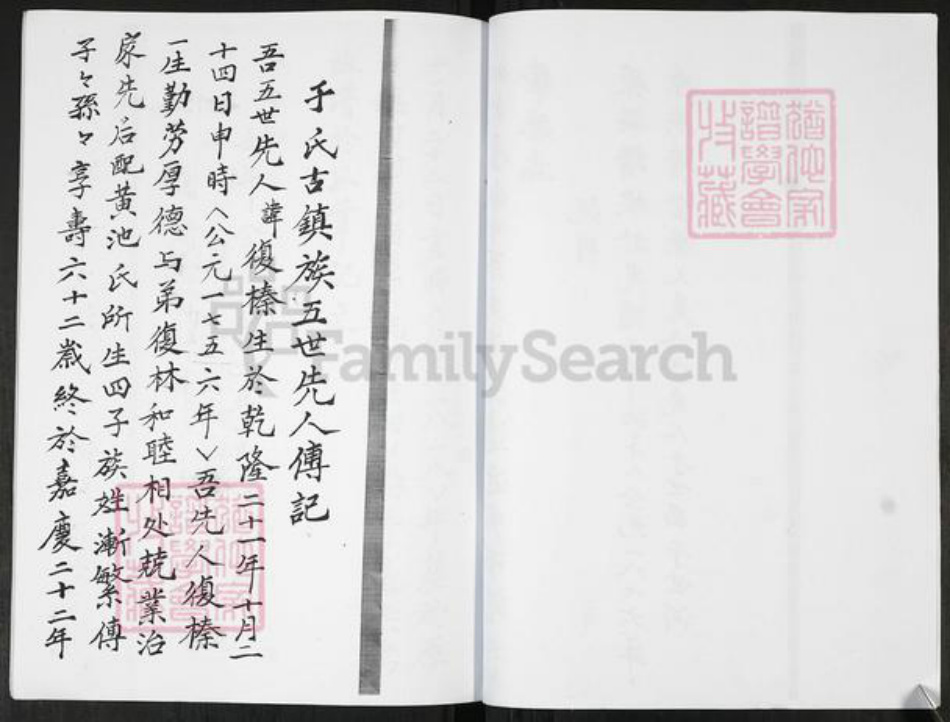 于氏古鎮族五世先人傳記
吾五世先人諱復榛生於乾隆二十一年十月二
十四日申時〈公元一七五六年〉吾先人復榛
一生勤劳厚德与弟復林和睦相处兢業治
家先后配黄池氏所生四子族姓漸繁傳
子々孫々享壽六十二歲終於嘉慶二十二年
猶他家
譜學會
收藏
猶他家
譜學會
收藏
FamilySearch